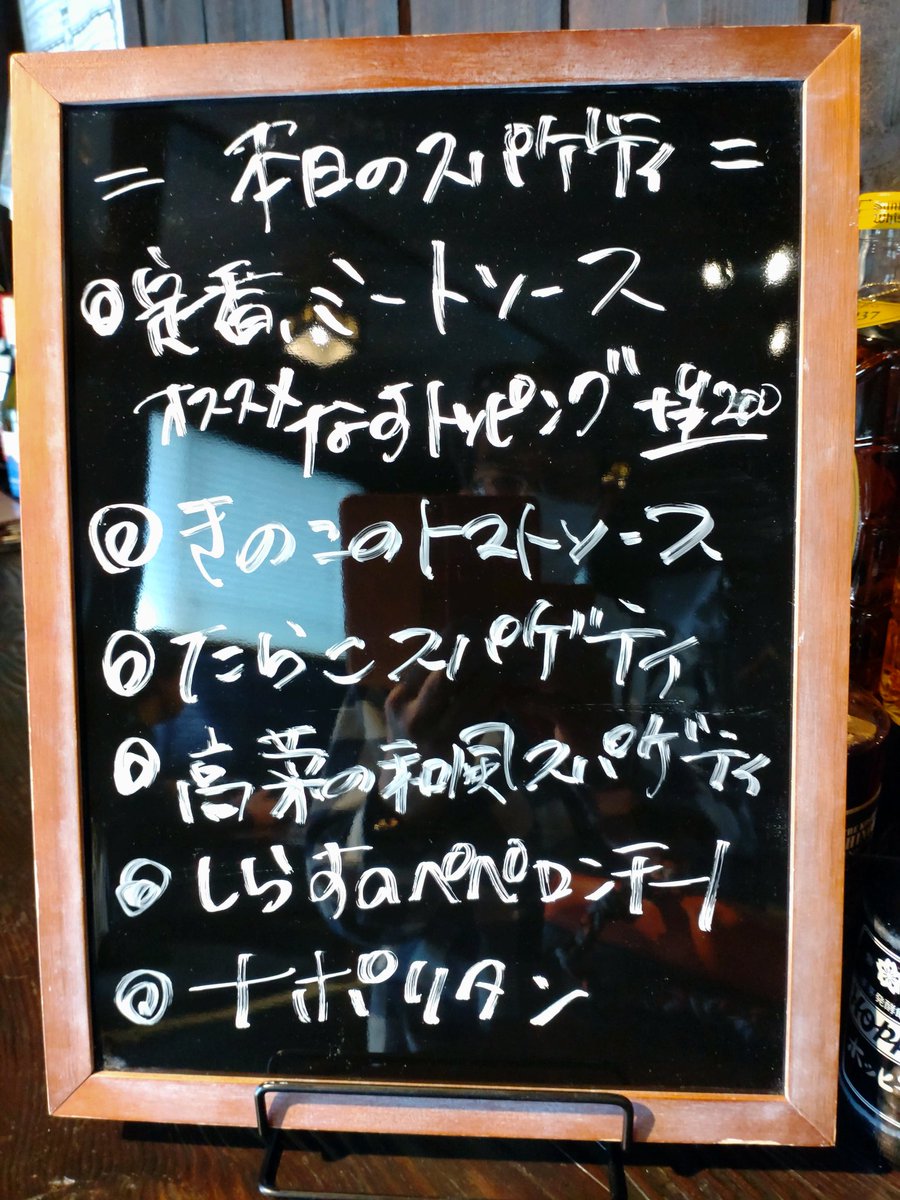 = 本日のスパゲティ =
◎定番ミートソース
オススメなすトッピング +¥200
◎きのこのトマトソース
◎たらこスパゲティ
◎高菜の和風スパゲティ
◎しらすのペペロンチーノ
◎ナポリタン
ホッピ